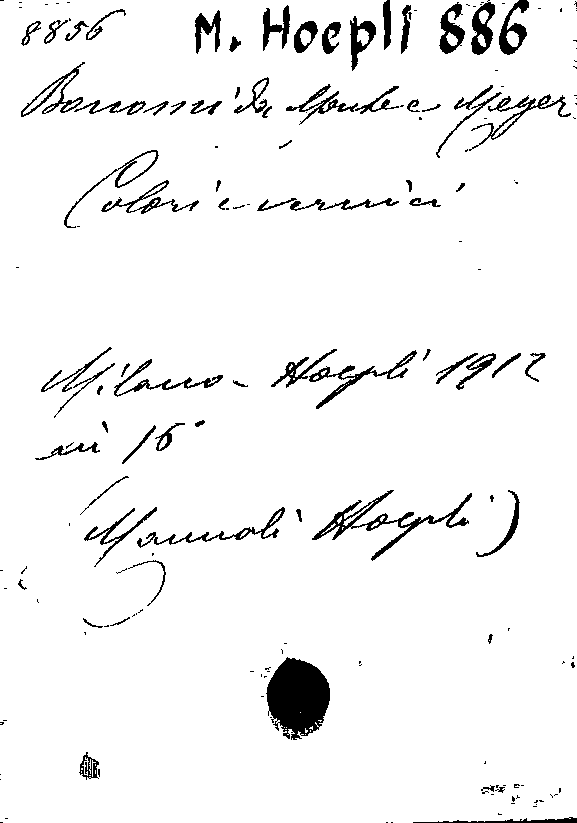 8856 M. Hoepli 886
Bonomi da Monte e Meyer
Colori e vernici
Milano - Hoepli 1912
in 16°
(Manuali Hoepli)